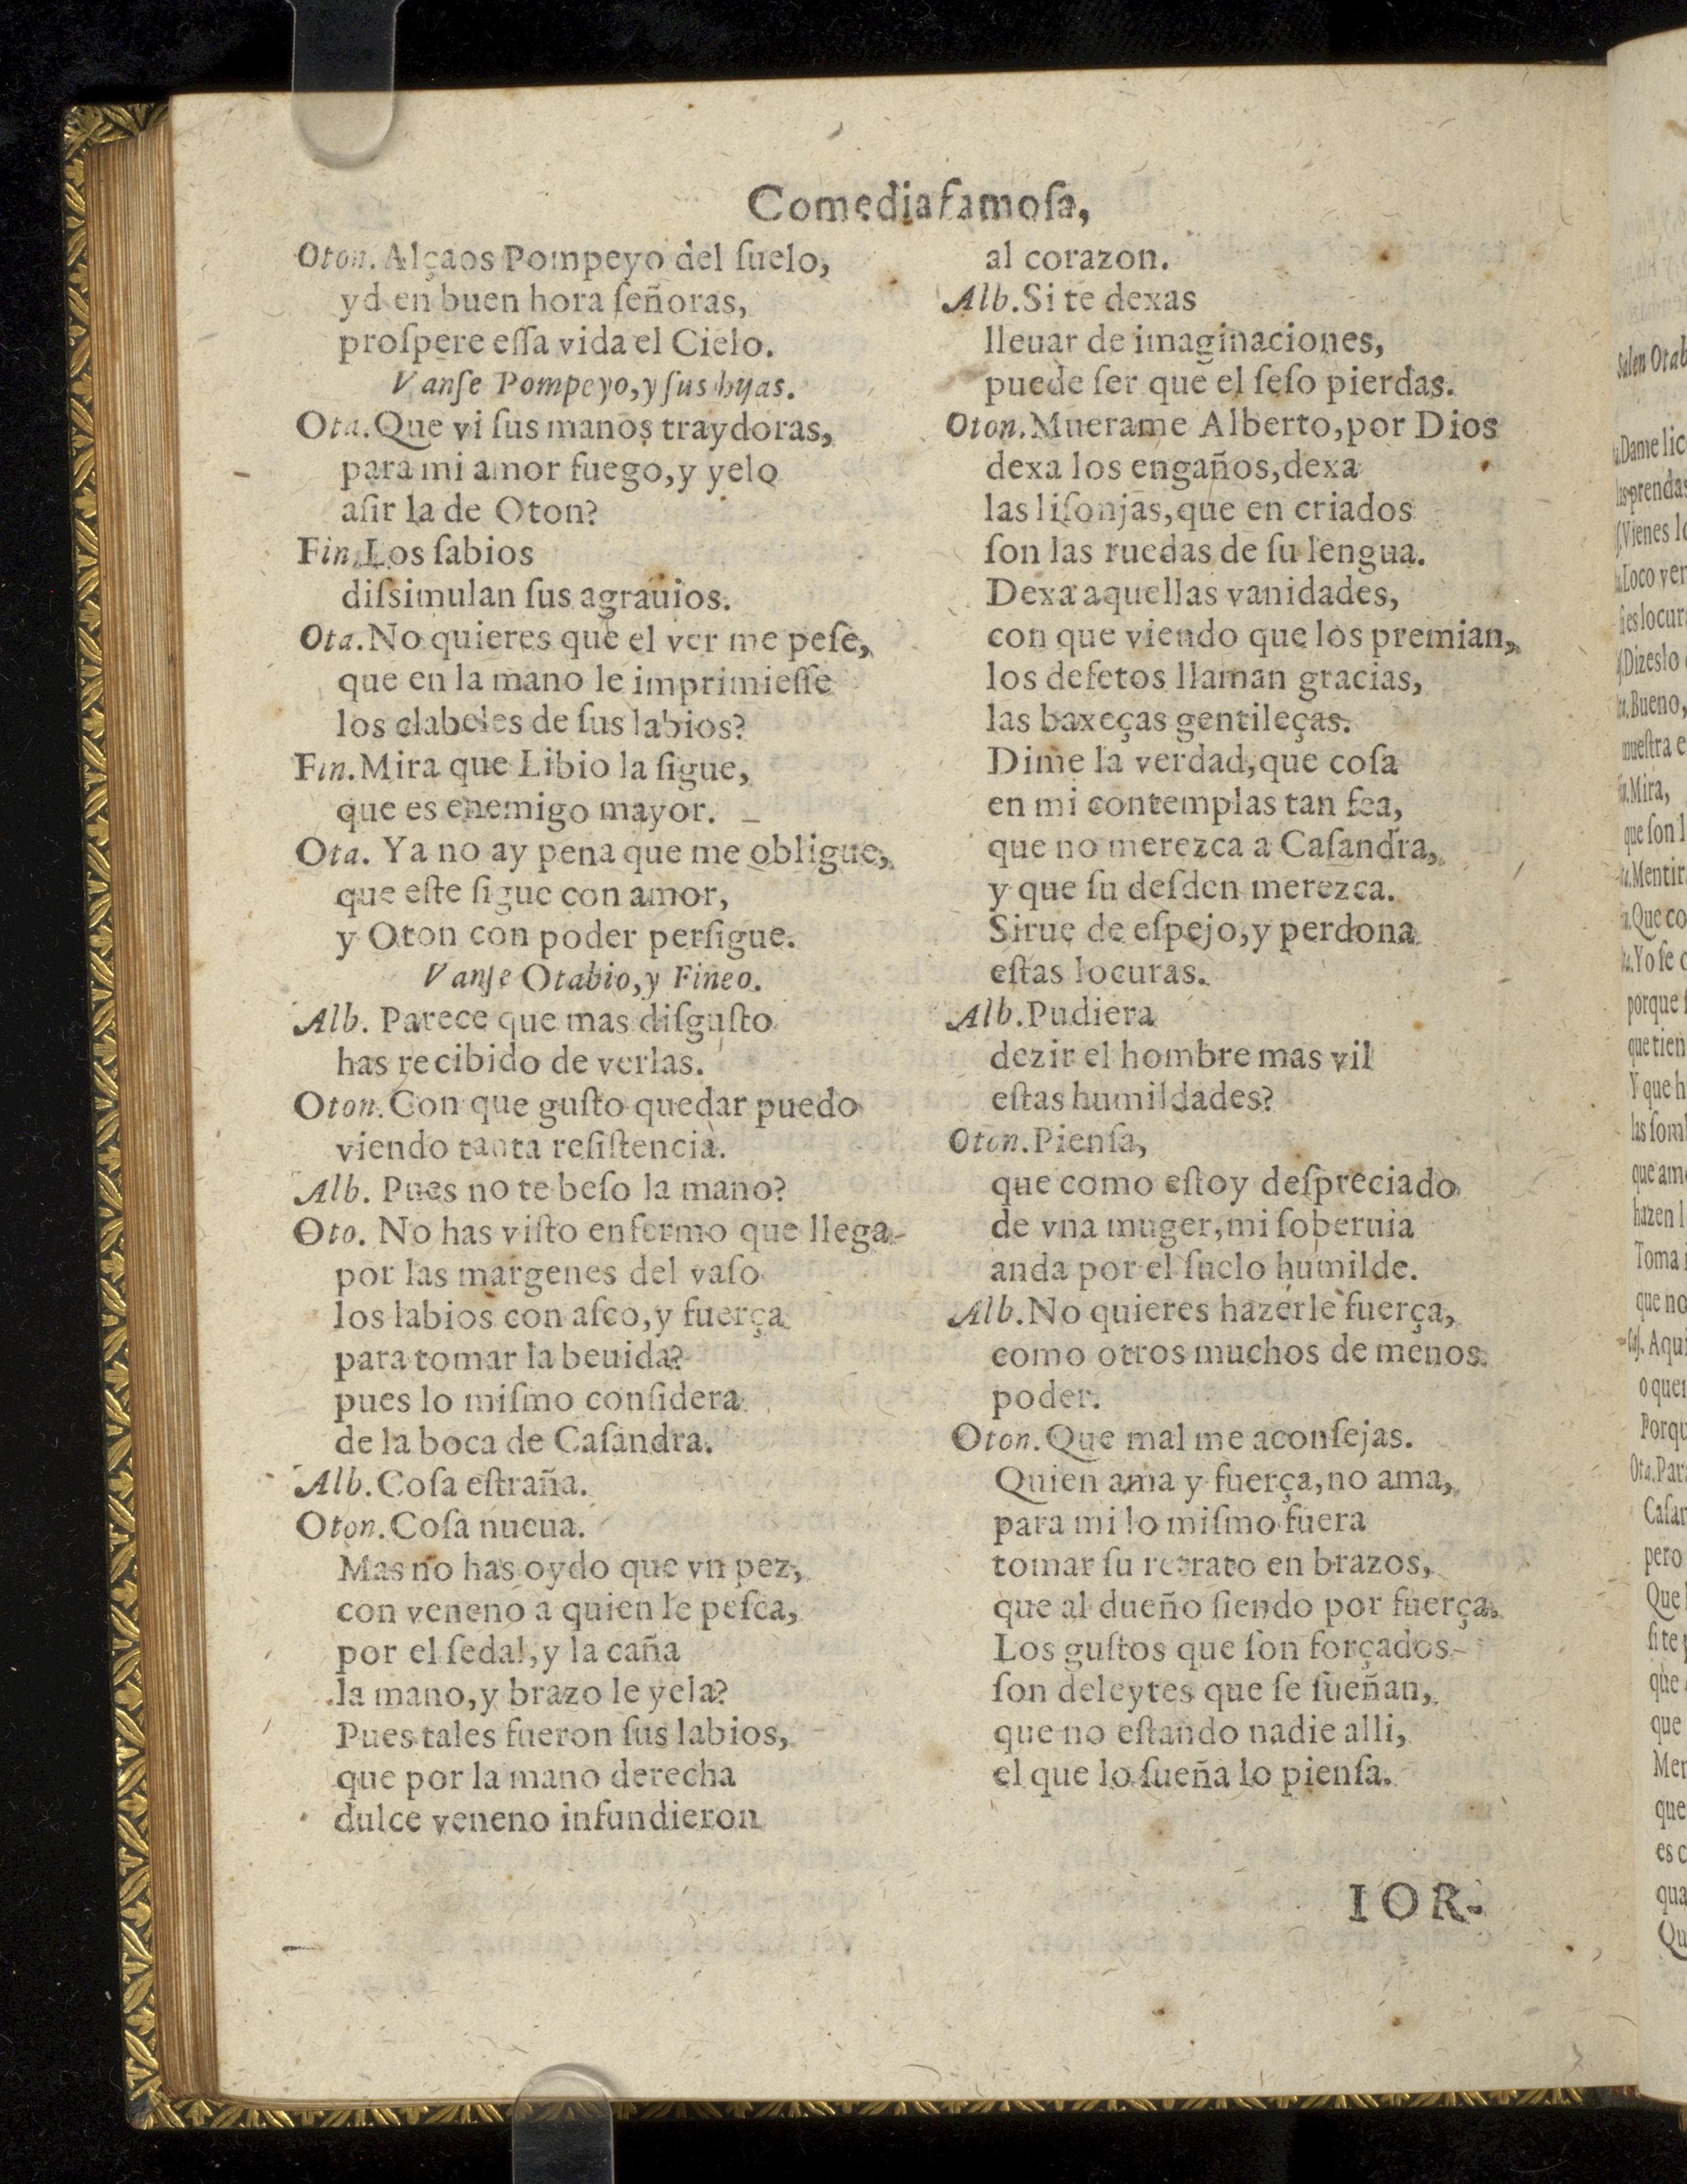 Comedia famoſa,
Oton. Alçaos Pompeyo del ſuelo,
yd en buen hora ſeñoras,
proſpere eſſa vida el Cielo.
Vanſe Pompeyo, y ſus hijas.
Ota. Que vi ſus manos traydoras,
para mi amor fuego, y yelo
aſir la de Oton?
Fin. Los ſabios
diſsimulan ſus agrauios.
Ota. No quieres que el ver me peſe,
que en la mano le imprimieſſe
los clabeles de ſus labios?
Fin. Mira que Libio la ſigue,
que es enemigo mayor.
Ota. Ya no ay pena que me obligue,
que eſte ſigue con amor,
y Oton con poder perſigue.
Vanſe Otabio, y Fineo.
Alb. Parece que mas diſguſto
has recibido de verlas.
Oton. Con que guſto quedar puedo
viendo tanta reſiſtencia.
Alb. Pues no te beſo la mano?
Oto. No has viſto enfermo que llega
por las margenes del vaſo
los labios con aſco, y fuerça
para tomar la beuida?
pues lo miſmo conſidera
de la boca de Caſandra.
Alb. Coſa eſtraña.
Oton. Coſa nueua.
Mas no has oydo que vn pez,
con veneno a quien le peſca,
por el ſedal, y la caña
la mano, y brazo le yela?
Pues tales fueron ſus labios,
que por la mano derecha
dulce veneno infundieron
al corazon.
Alb. Si te dexas
lleuar de imaginaciones,
puede ſer que el ſeſo pierdas.
Oton. Muerame Alberto, por Dios
dexa los engaños, dexa
las liſonjas, que en criados
ſon las ruedas de ſu lengua.
Dexa aquellas vanidades,
con que viendo que los premian,
los defetos llaman gracias,
las baxeças gentileças.
Dime la verdad, que coſa
en mi contemplas tan fea,
que no merezca a Caſandra,
y que ſu deſden merezca.
Sirue de eſpejo, y perdona
eſtas locuras.
Alb. Pudiera
dezir el hombre mas vil
eſtas humildades?
Oton. Pienſa,
que como eſtoy deſpreciado
de vna muger, mi ſoberuia
anda por el ſuelo humilde.
Alb. No quieres hazerle fuerça,
como otros muchos de menos
poder.
Oton. Que mal me aconſejas.
Quien ama y fuerça, no ama,
para mi lo miſmo fuera
tomar ſu retrato en brazos,
que al dueño ſiendo por fuerça.
Los guſtos que ſon forçados
ſon deleytes que ſe ſueñan,
que no eſtando nadie alli,
el que lo ſueña lo pienſa.
IOR-
Salen Otab
Dame lic
prendas
Vienes lo
Loco ver
es locura
Dizeslo
Bueno,
mueſtra e
Mira,
que ſon l
Mentir
Que co
Yo ſe
porque
que tien
Y que h
las ſom
que am
hazen l
Toma
que no
Caſ. Aqui
o quer
Porqu
Ota. Par
Caſan
pero
Que
ſi te
que
que
Mer
que
es c
qua
Qu